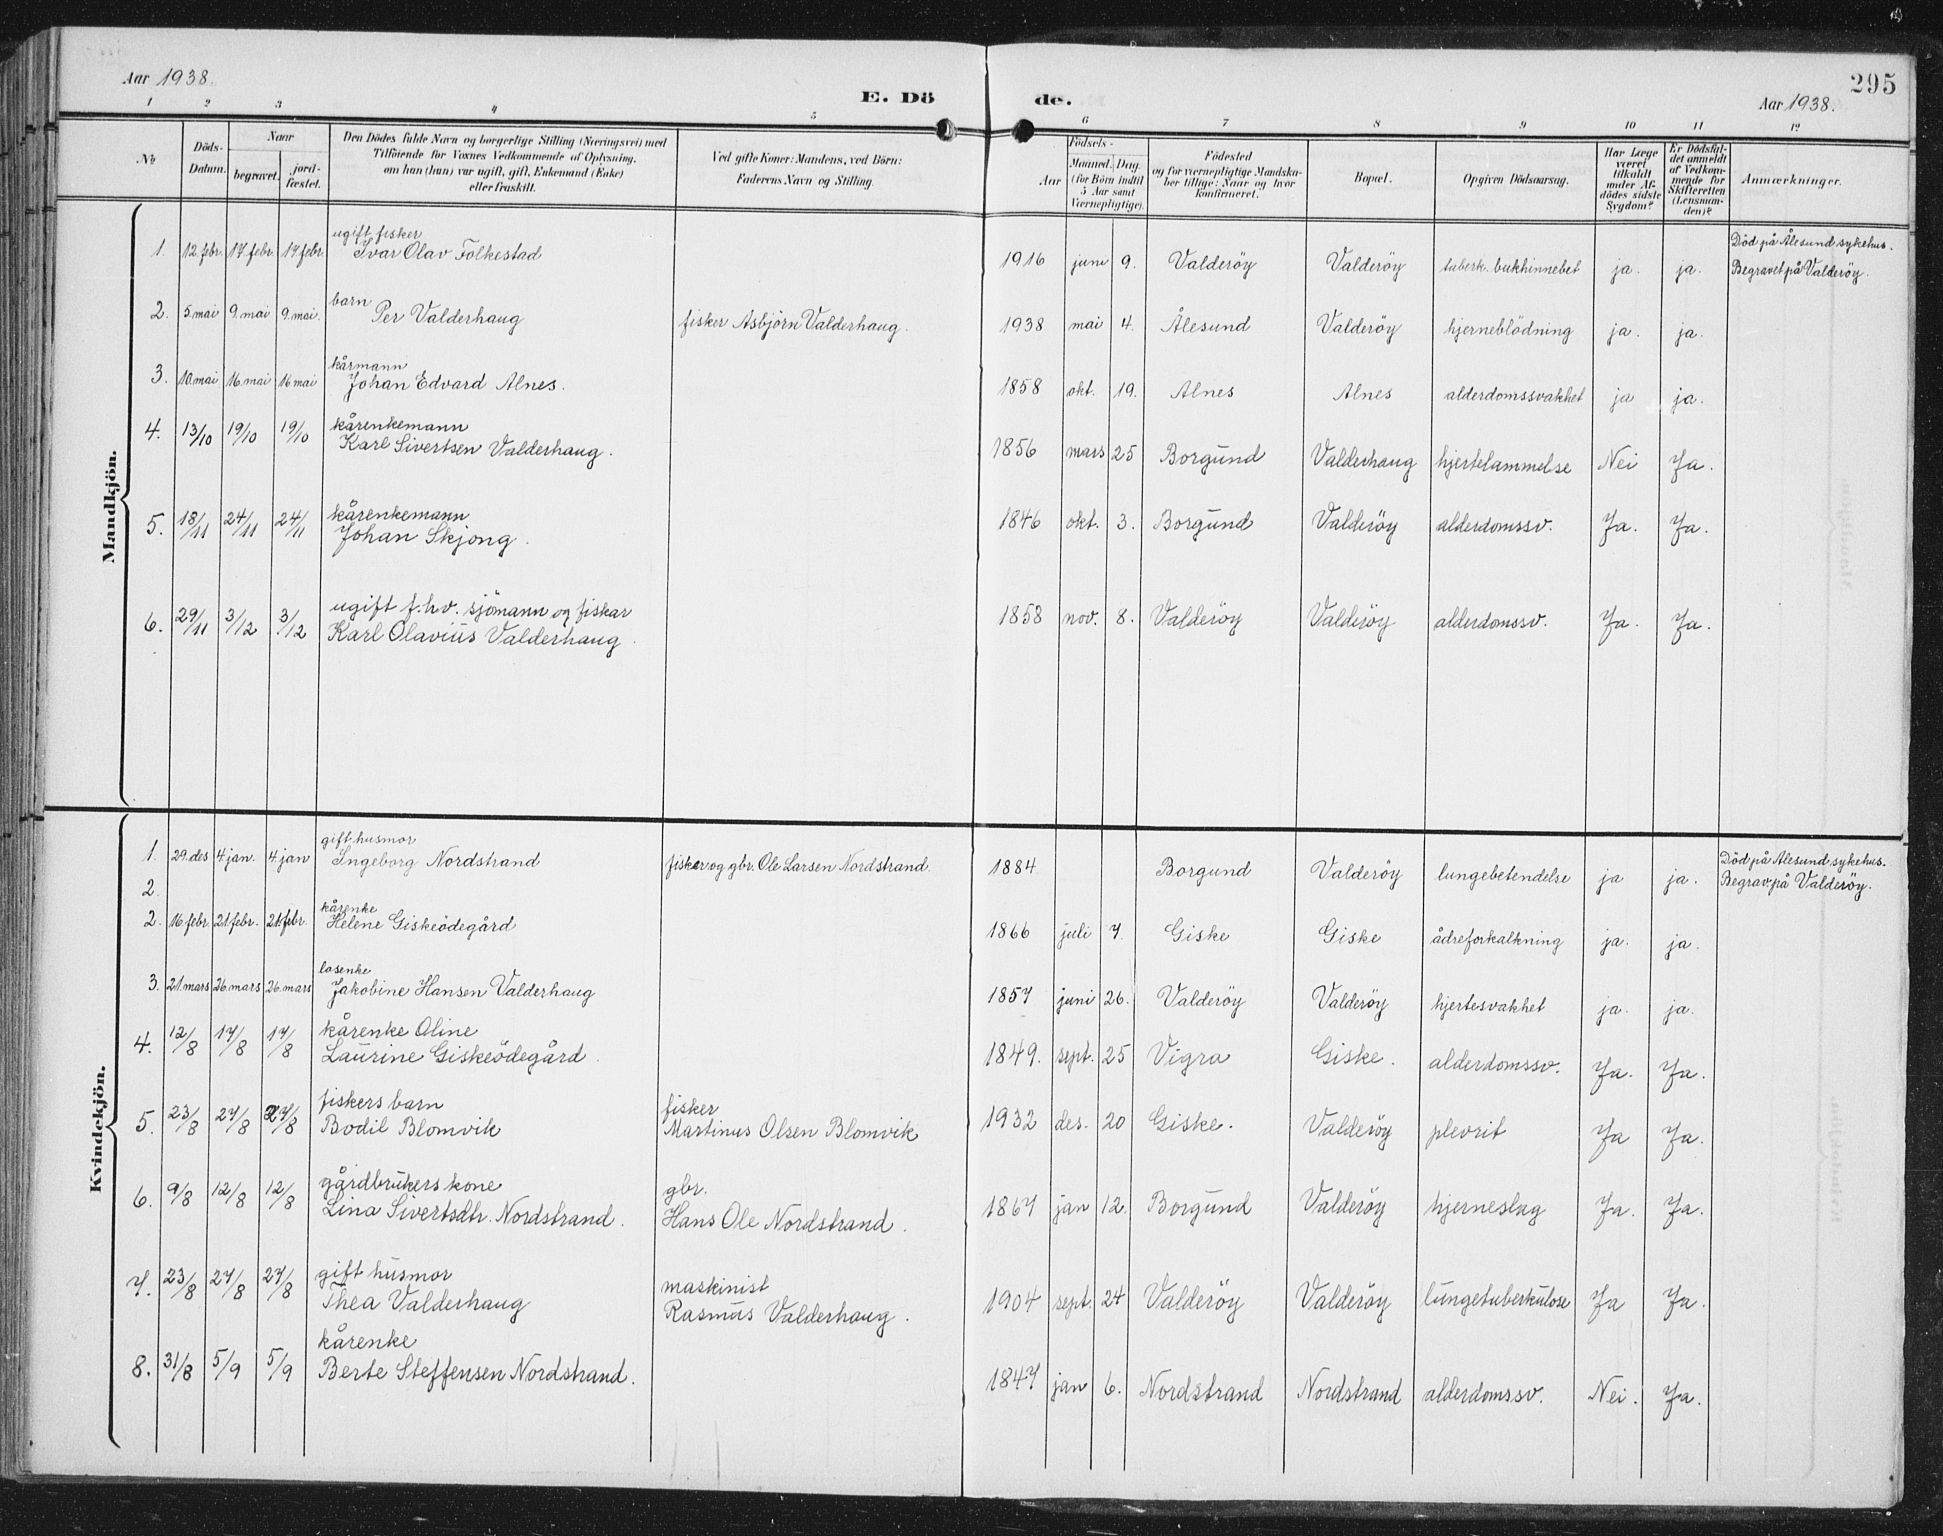 Aar 1938.
E. Dö
de.
295
Aar 1938.
1 2 3 4 5 6 7 8 9 10 11 12
No
Döds-
Datum.
Naar
begravet.
jord-
fæstet.
Den Dödes fulde Navn og borgerlige Stilling (Næringsvei) med
Tilföiende for Voxnes Vedkommende af Oplysning.
om han (hun) var ugift, gift, Enkemand (Enke)
eller fraskilt.
Ved gifte Koner: Mandens, ved Börn:
Faderens Navn og Stilling.
Födsels-
Aar
Maaned. Dag.
(for Börn indtil
5 Aar samt
Værnepligtige).
Födested
og for værnepligtige Mandska-
ber tillige: Naar og hvor
konfirmeret.
Bopæl.
Opgiven Dödsaarsag.
Har Læge
været
tilkaldt
under Af-
dödes sidste
Sygdom?
Er Dödsfal-
det anmeldt
af Vedkom-
mende for
Skifteretten
(Lensman-
den)?
Anmærkninger.
Mandkjön.
ugift fisker
1. 12. febr. 17. febr. 17. febr. Ivar Olav Folkestad 1916 juni 9. Valderöy Valderöy tuberk. bukhinnebet ja. ja. Död på Ålesund sykehus.
Begravet på Valderöy.
barn
2. 5. mai 9. mai 9. mai. Per Valderhaug fisker Asbjörn Valderhaug. 1938 mai 4. Ålesund Valderöy hjerneblödning ja. ja.
kårmann
3. 10. mai 16. mai 16 mai Johan Edvard Alnes. 1858 okt. 19. Alnes Alnes alderdomssvakhet ja ja.
kårenkemann
4. 13/10 19/10 19/10 Karl Sivertsen Valderhaug. 1856 mars 25 Borgund Valderhaug hjertelammelse Nei Ja.
kårenkemann
5. 18/11 24/11 24/11 Johan Skjong. 1846 okt. 3. Borgund Valderöy alderdomssv. Ja. Ja.
ugift f.hv. sjömann og fiskar
6. 29/11 3/12 3/12 Karl Olavius Valderhaug. 1858 nov. 8. Valderöy Valderöy alderdomssv. Ja. Ja.
Kvindekjön.
gift husmor
1. 29. des 4 jan. 4. jan Ingeborg Nordstrand fisker og gbr. Ole Larsen Nordstrand. 1884 Borgund Valderöy lungebetendelse ja ja. Död på Ålesund sykehus.
Begrav. på Valderöy.
2.
kårenke
2. 16. febr 21. febr. 21. febr. Helene Giskeödegård 1866 juli 7. Giske Giske ådreforkalkning ja. ja.
losenke
3. 21. mars 26. mars 26. mars Jakobine Hansen Valderhaug 1857 juni 26. Valderöy Valderöy hjertesvakhet ja. ja.
kårenke Oline
4. 12/8 17/8 17/8 Laurine Giskeödegård. 1849. sept. 25 Vigra Giske. alderdomssv. Ja. Ja.
fiskers barn fisker
5. 23/8 27/8 27/8 Bodil Blomvik Martinus Olsen Blomvik 1932 des. 20 Giske. Valderöy plevrit Ja Ja.
gårdbrukers kone gbr.
6. 9/8 12/8 12/8 Lina Sivertsdtr. Nordstrand. Hans Ole Nordstrand. 1867 jan 12. Borgund Valderöy hjerneslag Ja. Ja.
gift husmor maskinist
7. 23/8 27/8 27/8 Thea Valderhaug Rasmus Valderhaug. 1904 sept. 24 Valderöy Valderöy lungetuberkulose Ja Ja.
kårenke
8. 31/8 5/9 5/9 Berte Steffensen Nordstrand. 1847 jan 6. Nordstrand Nordstrand alderdomssv. Nei. Ja.